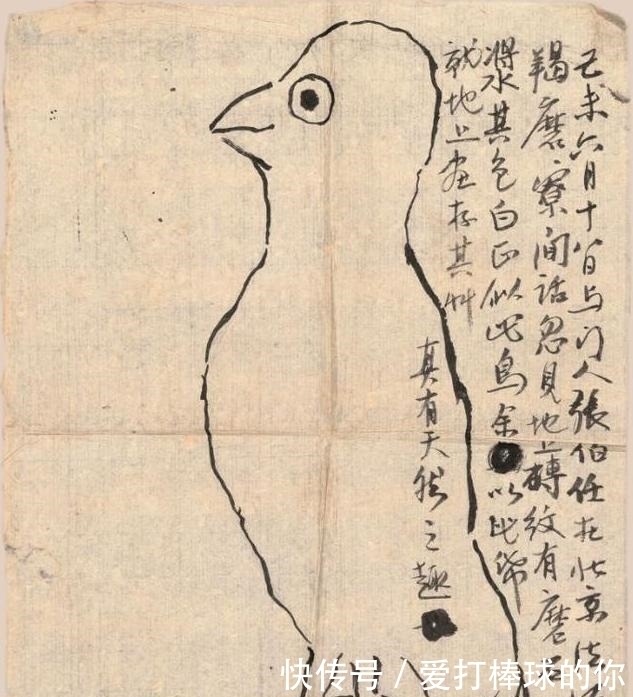 己未六月十八日与门人張伯任在北京法
羯磨寮間話忽見地上磚紋有磨石
漿其色白正似此鳥余以此帋
就地上畫存其艸
真有天然之趣
快传号 / 爱打棒球的你